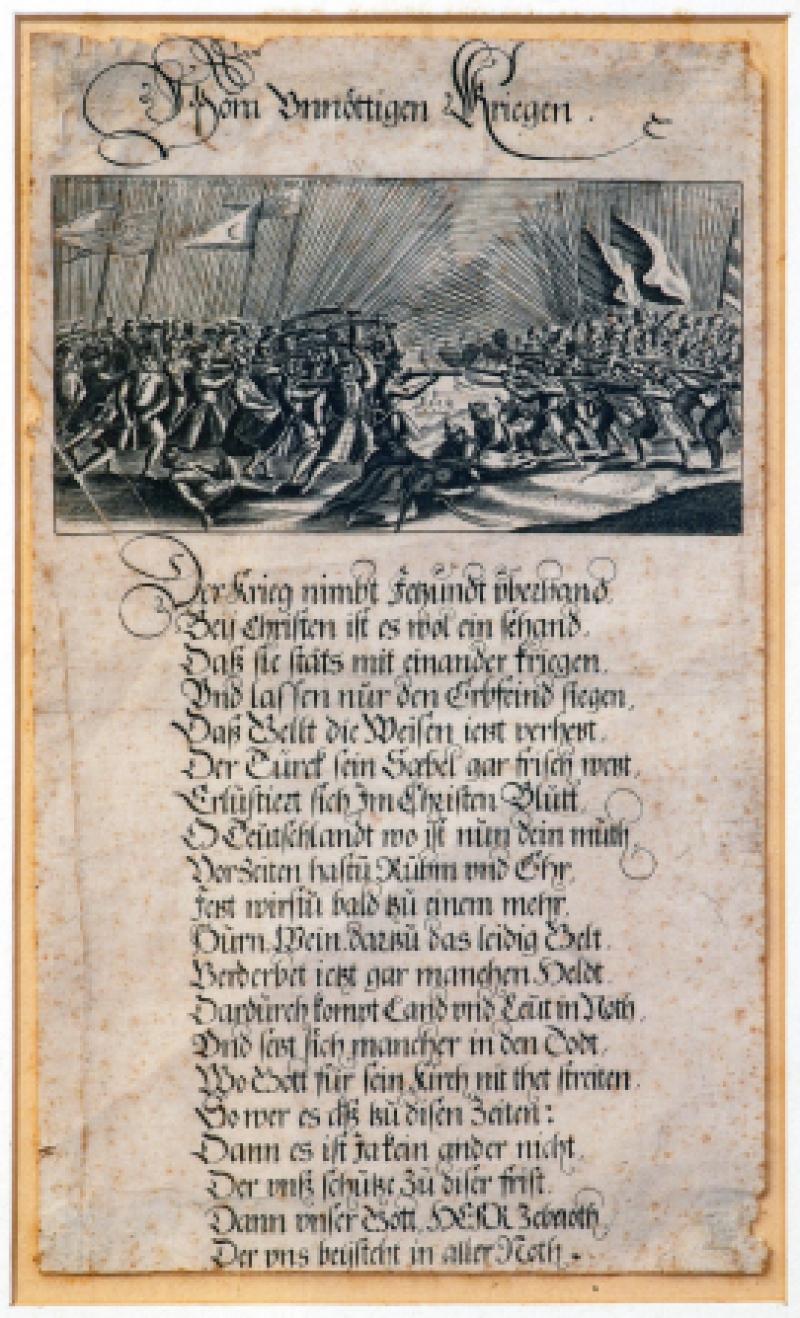 Vom Vnnöttigen Kriegen.
Der Krieg nimbt Jetzundt vberhand.
Beij Christen ist es wol ein schand.
Daß sie stäts mit einander kriegen.
Vnd lassen nůr den Erbfeind siegen,
Daß Gellt die Weisen ietzt verhetzt.
Der Türck sein Sæbel gar frisch wetzt,
Erlůstiert sich Jm Christen Blůtt.
O Teůtschlandt wo ist nůn dein můth,
Vor Zeiten hastů Růhm vnd Ehr,
Jetzt wirstů bald zů einem mehr,
Wein, dartzů das leidig Gelt.
Verderbet ietzt gar manchen Heldt.
Dardůrch kompt Land vnd Leůt in Noth,
Vnd setzt sich mancher in den Todt,
Wo Gott für sein Kirch nit thet streiten.
So wer es tzů disen Zeiten:
Dann es ist Ja kein ander nicht.
Der vnß schůtze Zů diser frist.
Dann vnser Gott, HERR Zebaoth,
Der vns beijsteht in aller Noth.